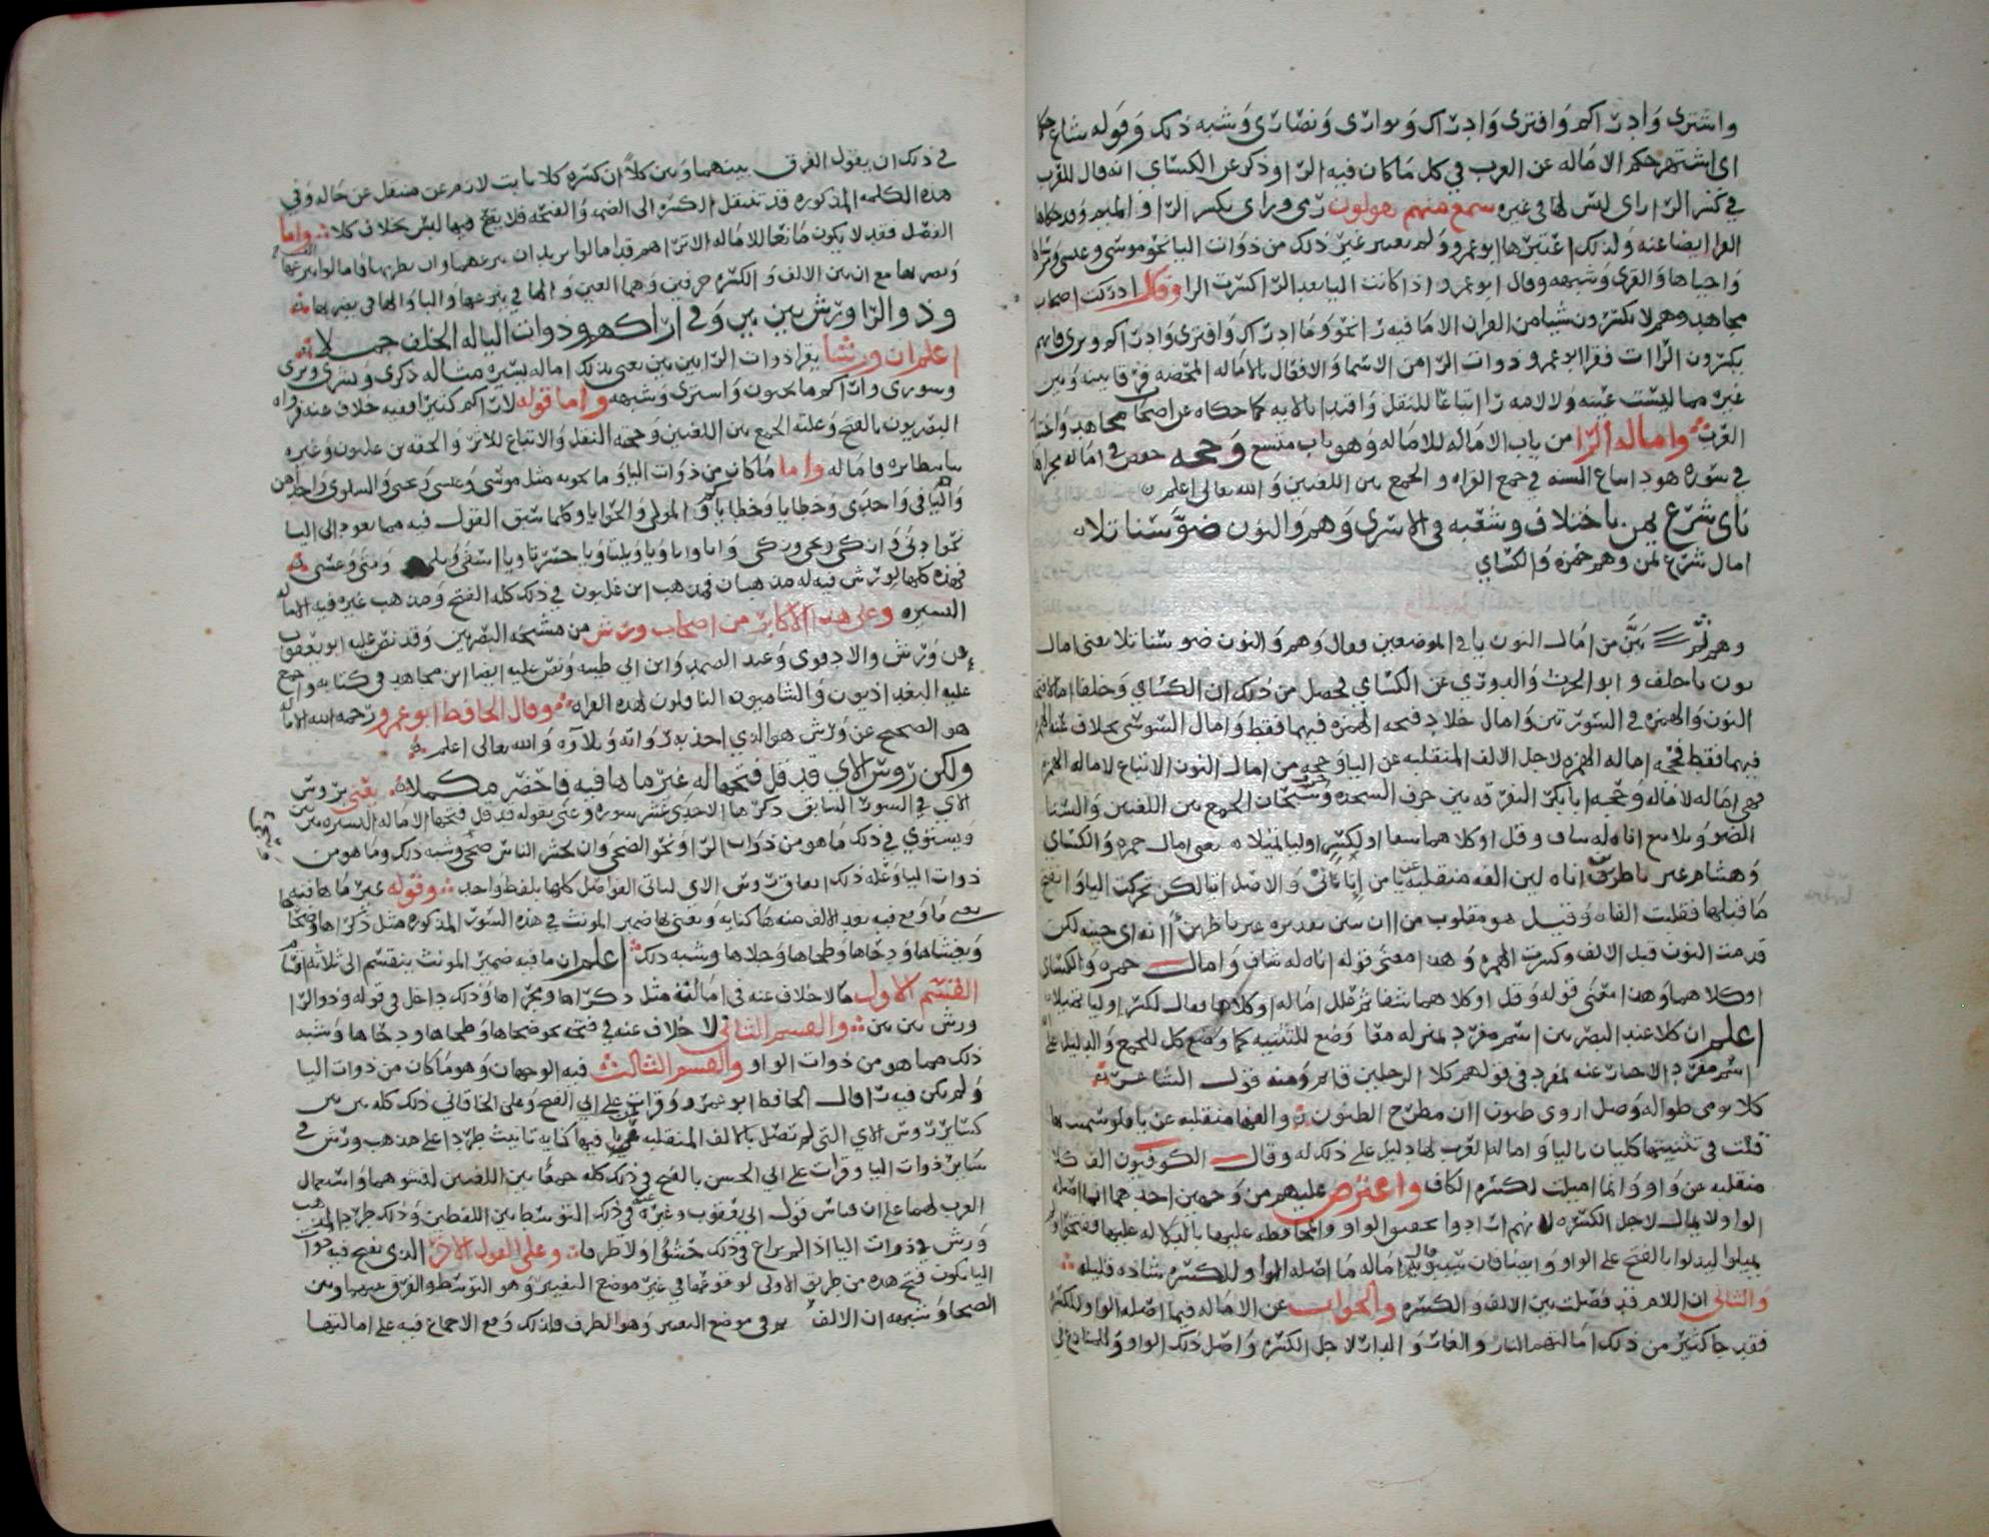 واشترى وادراكم وافترى وادراك وتوارى ونصارى وشبه ذلك وقوله شاع حكما
اى اشتهر حكم الاماله عن العرب في كل ما كان فيه الرا وذكر عن الكسائي انه قال للعرب
في كسر الرا راى ليس لها في غيره سمع منهم يقولون رمى وراى بكسر الرا والميم وقد حكاها
الفرا ايضا عنه ولذلك اعتبرها ابو عمرو ولم يعتبر غير ذلك من ذوات اليا نحو موسى وعيسى
واحياها والقرى وشبهه وقال ابو عمرو اذا كانت اليا بعد الرا كسرت الرا وقال ادركت اصحاب
مجاهد وهم لا يكسرون شيا من القران الا ما فيه را نحو وما ادراك وافترى وادراكم وترى فانهم
يكسرون الراات فقرا ابو عمرو ذوات الرا من الاسما والافعال بالاماله المحضه فرقا بينه وبين
غيره مما ليست عينه ولا لامه را اتباعا للنقل واقتدا بالايه كما حكاه عن اصحاب مجاهد
العرب واماله الرا من باب الاماله للاماله وهو باب متسع وحجه حفص في اماله مجراها
في سوره هود اتباع السنه في جمع القراه والجمع بين اللغتين والله تعالى اعلم
ناى شرع يمن باختلاف وشعبه في الاسرى وهم والنون ضو سنا تلا
امال شرع يمن وهم حمزه والكسائي
وهم ثم بين من امال النون ياى الموضعين فقال وهم والنون ضو سنا تلا يعنى امال
نون ناخلف وابو الحرث والدوري عن الكسائي فحصل من ذلك ان الكسائي وخلفا امالا فتحه
النون والهمزه في السورتين وامال خلاد فتحه الهمزه فيهما فقط وامال السوسى بخلاف عنه الهمزه
فيهما فقط فحجه اماله الهمزه لاجل الالف المنقلبه عن اليا وحجه من امال النون الاتباع لاماله الهمزه
فهى اماله لاماله وحجه ابا بكر التفرقه بين حرف السجده وسبحان الجمع بين اللغتين والسنا
الضو وتلا تبع اناه له شاف وقل اوكلاهما شفا ولكسر او ليا تميلا يعنى امال حمزه والكسائي
وهشام غير ناظرين اناه لين الفه منقلبه عن يا من انا يانى والاصل انيا لكن تحركت اليا وانفتح
ما قبلها فقلبت الفا وقيل هو مقلوب من ان يين تقديره غير ناظرين انه اى حينه لكن
قدمت النون قبل الالف وكسرت الهمزه وهذا معنى قوله اناه له شاف وامال حمزه والكسائي
اوكلاهما وهذا معنى قوله وقل اوكلاهما شفا ثم علل اماله اوكلاهما فقال لكسر او ليا تميلا
اعلم ان كلا عند البصريين اسم مفرد بمنزله معا وضع للتثنيه كما وضع كل للجمع والدليل على
اسم مفرد الاخبار عنه بمفرد في قولهم كلا الرجلين قائم ومنه قول الشاعر
كلا يومى طواله وصل اروى ظنون ان مطرح الظنون والفها منقلبه عن يا فلو سميت بها
قلت في تثنيتها كليان باليا واماله العرب لها دليل على ذلك له وقال الكوفيون الف كلا
منقلبه عن واو وانما اميلت لكسره الكاف واعترض عليهم من وجهين احدهما انها اصله
الواو ولا يمال لاجل الكسره لانهم ارادوا تحقيق الواو والمحافظه عليها بالدلاله عليها ففتحوا ولم
يميلوا ليدلوا بالفتح على الواو وايضا فان سيبويه قال اماله ما اصله الواو للكسره شاذه قليله
والثانى ان اللام قد فصلت بين الالف والكسره والجواب عن الاماله فيما اصله الواو للكسره
فقد جا كثير من ذلك امالتهم النار والغار والدار لاجل الكسره واصل ذلك الواو
في ذلك ان يقول الفرق بينهما وبين كلا ان كسره كلا ثابت لازم غير منتقل عن حاله وفي
هذه الكلمه المذكوره قد تنتقل الكسره الى الضمه والفتحه فلا يقع فيها لبس بخلاف كلا واما
الفصل فقد لا يكون مانعا للاماله الا ترا هم قد امالوا يريد ان ينزعها وان يضربها فامالوا ينزعها
ويضربها مع ان بين الالف والكسره حرفين وهما العين والها في ينزعها والبا والها في يضربها
وذو الرا ورش بين بين وفي اراكهم وذوات اليا له الخلف جملا
اعلم ان ورشا يقرا ذوات الرا بين بين يعنى بذلك اماله يسيره مثاله ذكرى وبشرى وترى
وشورى واراكم ما تحبون واشترى وشبهه واما قوله لاراكم كثيرا ففيه خلاف عنه فرواه
البصريون بالفتح وعلته الجمع بين اللغتين وحجته النقل والاتباع للاثر والحقه بن غلبون وغيره
بانظائره فاماله واما ما كان من ذوات اليا وما نحوبه مثل موسى وعيسى ويحيى والسلوى واحداهن
واليتامى واحدى وخطايا وخطاياكم والمولى والحوايا وكلما سبق القول فيه مما يعود الى اليا
نحو ادنى وازكى ويحيى وزكى وانا وانا ويا ويلتا ويا حسرتا ويا اسفى وبلى ومتى وعسى
فهذه كلها لورش فيه له مذهبان فمذهب ابن غلبون في ذلك كله الفتح ومذهب غيره فيه الاماله
اليسيره وعلى هذا الاكابر من اصحاب ورش من مشيخه البصريين وقد نص عليه ابو يعقوب
عن ورش والادفوى وعبد الصمد وابن ابي طيبه ونص عليه ايضا ابن مجاهد في كتابه واجمع
عليه البغداذيون والشاميون الناقلون لهذه القراه وقال الحافظ ابو عمرو رحمه الله الاماله
هو الصحيح عن ورش هو الذي اخذ به رواته وتلاوه والله تعالى اعلم
ولكن رءوس الاي قد قل فتحها له غير ما ها فيه فاحضر مكملا يعنى برءوس
الاي في السور السابق ذكرها الاحدى عشر سوره وعنى بقوله قد قل فتحها الاماله اليسيره بين بين
ويستوي في ذلك ما هو من ذوات الرا ونحو الضحى وان يحشر الناس ضحى وشبه ذلك وما هو من
ذوات اليا وعله ذلك اتفاق رءوس الاى لياتى الفواصل كلها بلفظ واحد وقوله غير ما ها فيه
يعنى ما وقع فيه بعد الالف منه ها كنايه ويعنى ها ضمير المونث في هذه السور المذكوره مثل ذكراها وضحاها
ويغشاها ودحاها وطحاها وجلاها وشبه ذلك اعلم ان ما فيه ضمير المونث ينقسم الى ثلاثه اقسام
القسم الاول ما لا خلاف عنه في امالته مثل ذكراها ومجراها وذلك داخل في قوله وذو الرا
ورش بين بين والقسم الثانى لا خلاف عنه في فتحه نحو ضحاها وطحاها ودحاها وشبه
ذلك مما هو من ذوات الواو والقسم الثالث فيه الوجهان وهو ما كان من ذوات اليا
ولم يكن فيه را قال الحافظ ابو عمرو وقرات على ابي الفتح وعلى الخاقانى ذلك كله بين بين
كسائر رءوس الاي التى لم تتصل بالالف المنقلبه عن يا فيها كنايه تانيث طردا على مذهب ورش في
سائر ذوات اليا وقرات على ابي الحسن بالفتح في ذلك كله جمعا بين اللغتين لفشوهما واستعمال
العرب لهما على ان قياس قول ابى يعقوب وغيره عنه في ذلك التوسط بين اللفظين وذلك طرد المذهب
ورش في ذوات اليا اذا لم يراع في ذلك حشوا ولا طرفا وعلى القول الاخر الذى يفتح فيه ذوات
اليا يكون فتح هذه من طريق الاولى لوقوعها في غير موضع التغيير وهو التوسط والفرق بينها وبين
الضحى وشبهه ان الالف في موضع التغيير وهو الطرف فلذلك وقع الاجماع فيه على امالتها